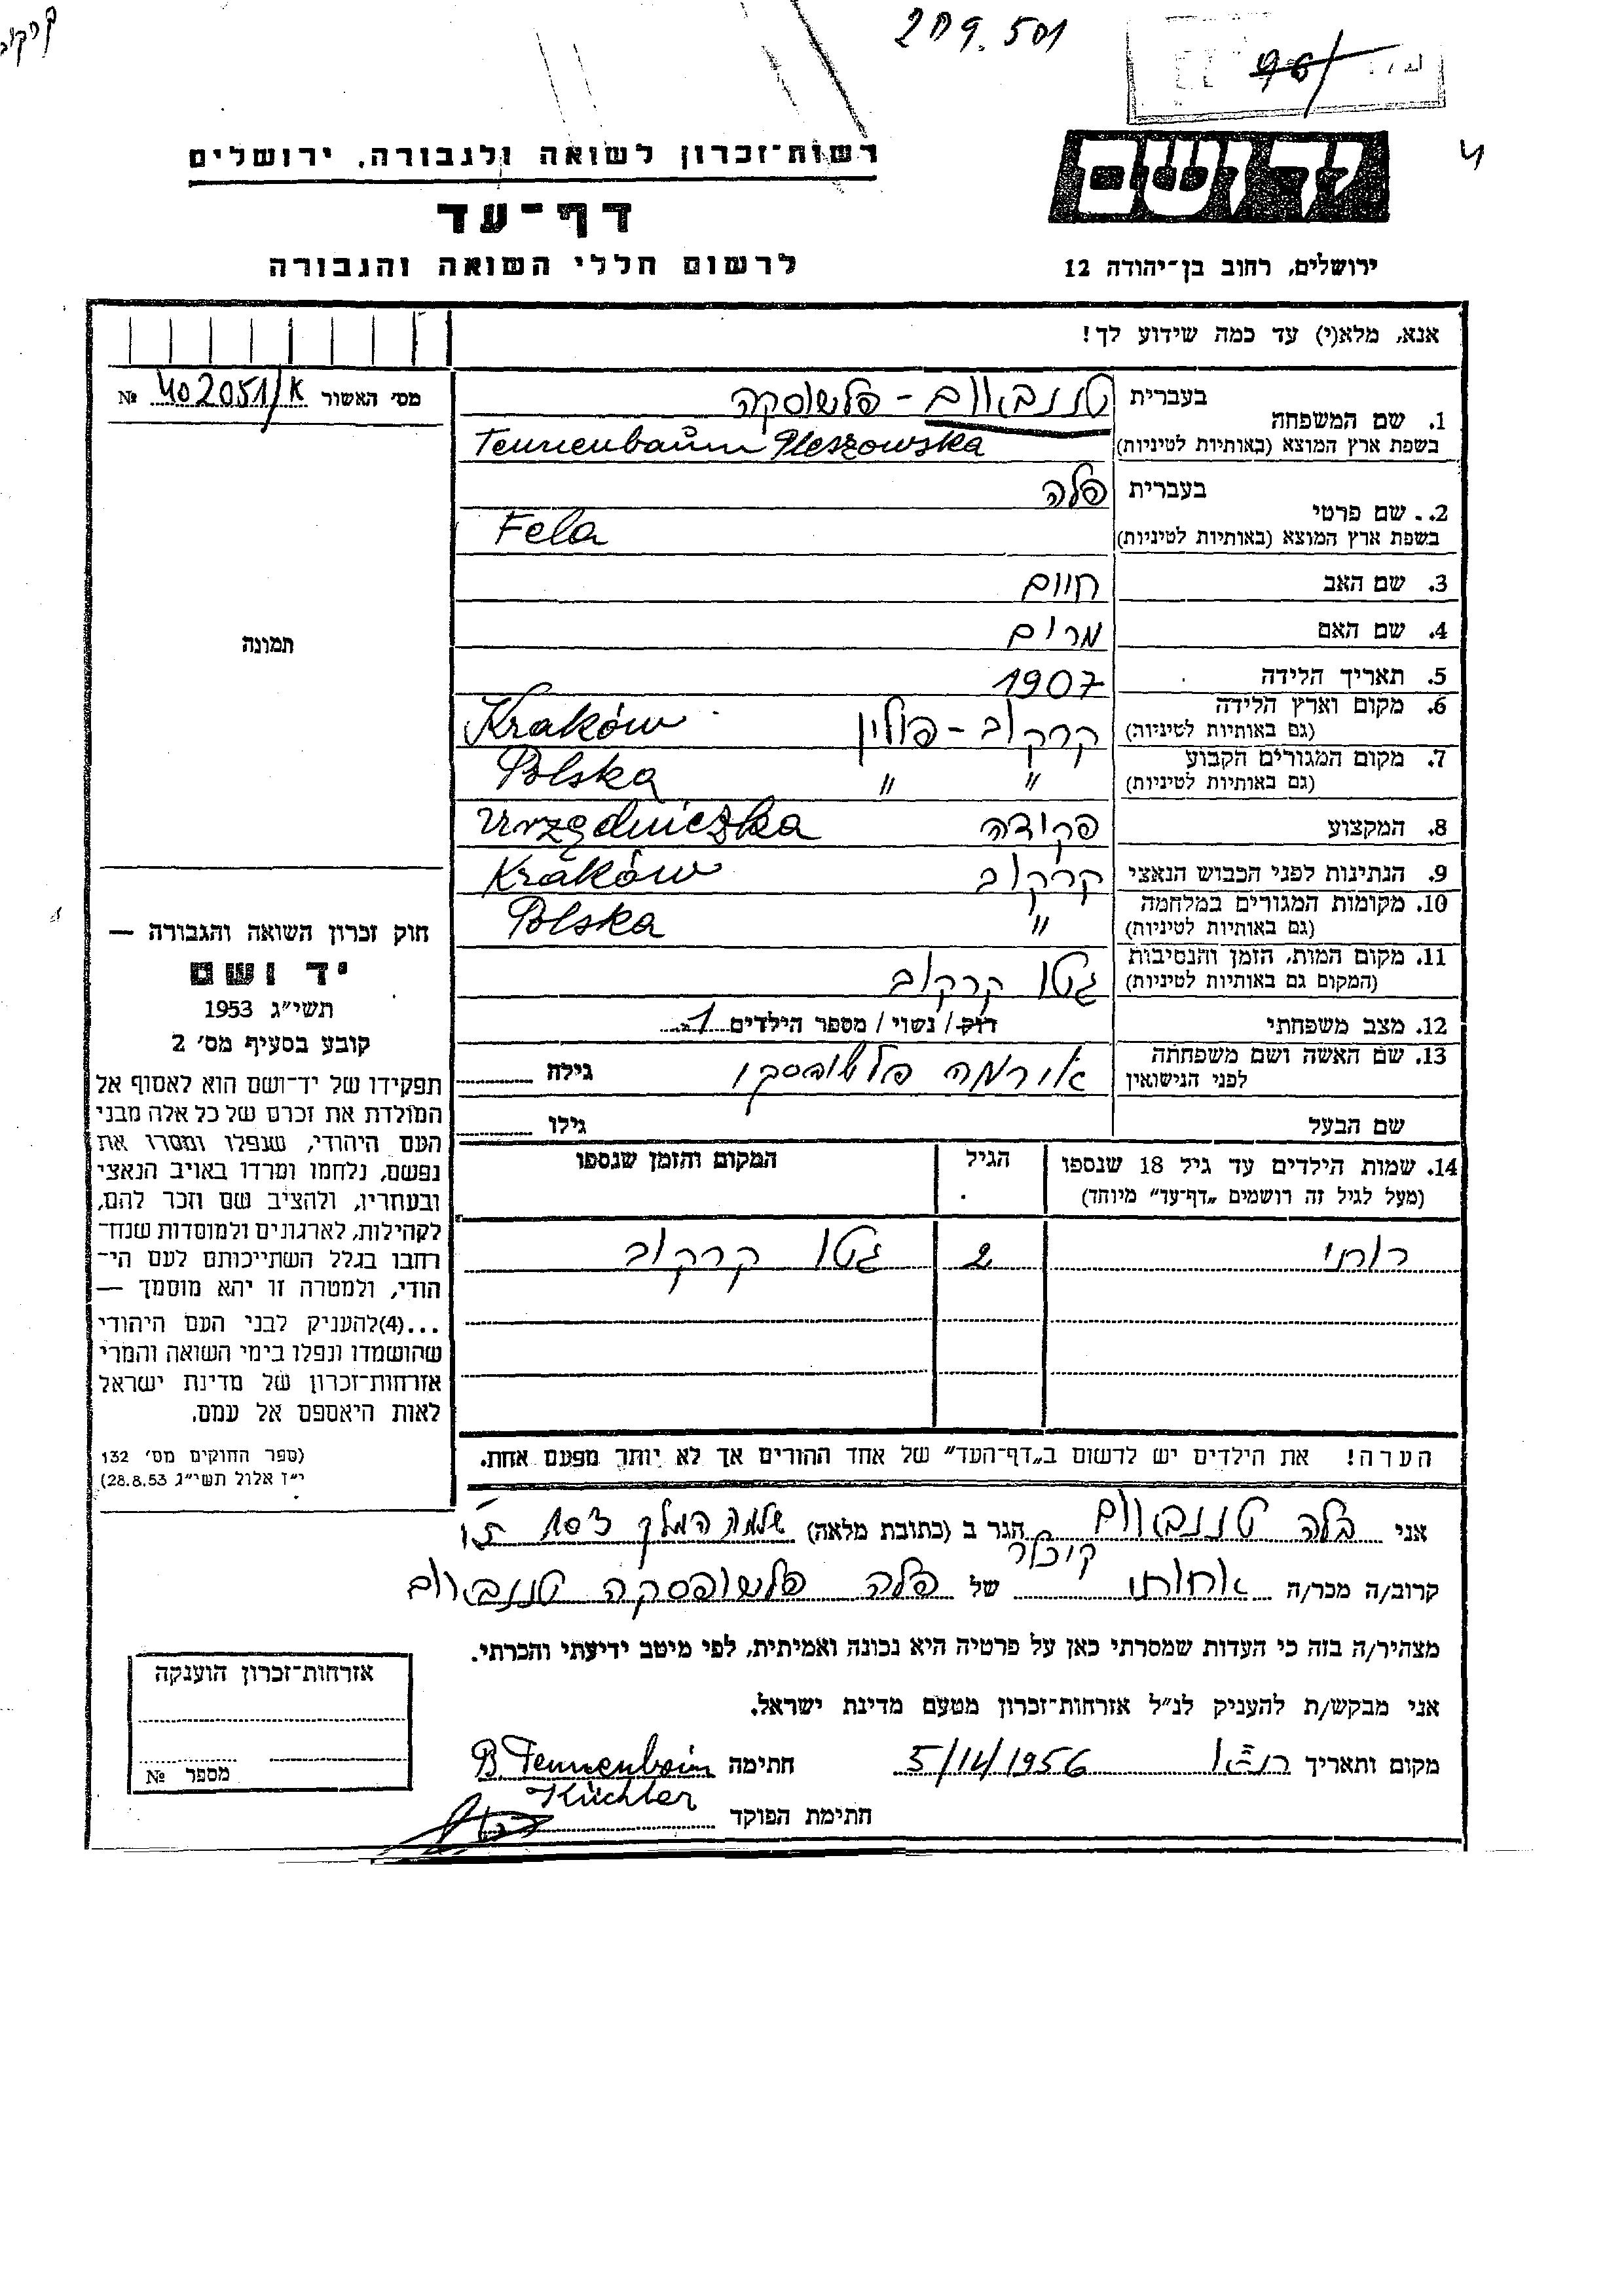 קרקוב
209.501
96/
יד ושם
רשות־זכרון לשואה ולגבורה, ירושלים
דף־עד
ירושלים, רחוב בן־יהודה 12
לרשום חללי השואה והגבורה
אנא, מלא(י) עד כמה שידוע לך!
מס׳ האשור № 402051/K
בעברית טננבאום - פלשוסקה
1. שם המשפחה
בשפת ארץ המוצא (באותיות לטיניות) Tennenbaum Pleszowska
בעברית פלה
2. שם פרטי
בשפת ארץ המוצא (באותיות לטיניות) Fela
3. שם האב חיים
4. שם האם מרים
5. תאריך הלידה 1907
6. מקום וארץ הלידה
(גם באותיות לטיניות) קרקוב - פולין Kraków
7. מקום המגורים הקבוע
(גם באותיות לטיניות) " " Polska
8. המקצוע פקידה Urzędniczka
9. הנתינות לפני הכבוש הנאצי קרקוב Kraków
10. מקומות המגורים במלחמה
(גם באותיות לטיניות) " Polska
11. מקום המות, הזמן והנסיבות
(המקום גם באותיות לטיניות) גטו קרקוב
12. מצב משפחתי רוק/ נשוי / מספר הילדים 1
13. שם האשה ושם משפחתה
לפני הנישואין פלשופסקי גילה
שם הבעל גילו
14. שמות הילדים עד גיל 18 שנספו הגיל המקום והזמן שנספו
(מעל לגיל זה רושמים „דף־עד" מיוחד)
רותי 2 גטו קרקוב
הערה! את הילדים יש לרשום ב„דף־העד" של אחד ההורים אך לא יותר מפעם אחת.
תמונה
חוק זכרון השואה והגבורה —
יד ושם
תשי״ג 1953
קובע בסעיף מס׳ 2
תפקידו של יד־ושם הוא לאסוף אל
המולדת את זכרם של כל אלה מבני
העם היהודי, שנפלו ומסרו את
נפשם, נלחמו ומרדו באויב הנאצי
ובעוזריו, ולהציב שם וזכר להם,
לקהילות, לארגונים ולמוסדות שנח־
רחבו בגלל השתייכותם לעם הי־
הודי, ולמטרה זו יהא מוסמך —
...(4)להעניק לבני העם היהודי
שהושמדו ונפלו בימי השואה והמרי
אזרחות־זכרון של מדינת ישראל
לאות היאספם אל עמם.
(ספר החוקים מס׳ 132
י״ז אלול תשי״ג 28.8.53)
אני בלה טננבאום הגר ב (כתובת מלאה) שלמה המלך 103
קיכלר
קרוב/ה מכר/ה אחותי של פלה פלשופסקה טננבאום
מצהיר/ה בזה כי העדות שמסרתי כאן על פרטיה היא נכונה ואמיתית, לפי מיטב ידיעתי והכרתי.
אני מבקש/ת להעניק לנ״ל אזרחות־זכרון מטעם מדינת ישראל.
מקום ותאריך 5/14/1956 חתימה B. Tennenbaum
Küchler
חתימת הפוקד
אזרחות־זכרון הוענקה
מספר №